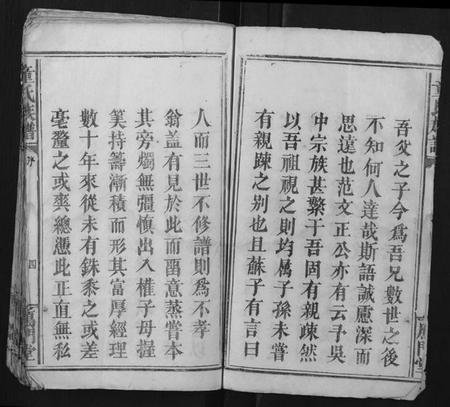 吾父之子今爲吾兄數世之後
不知何人達哉斯語誠慮深而
思遠也范文正公亦有云予吳
中宗族甚繫于吾固有親疎然
以吾祖視之則均屬子孫未嘗
有親疎之别也且蘇子有言曰
人而三世不修譜則爲不孝
翁蓋有見於此而畱意蒸嘗本
其旁燭無彊慎出入權子母握
筭持籌漸積而形其富厚經理
數十年來從未有銖黍之或差
毫釐之或爽總憑此正直無私
童氏族譜
序
四